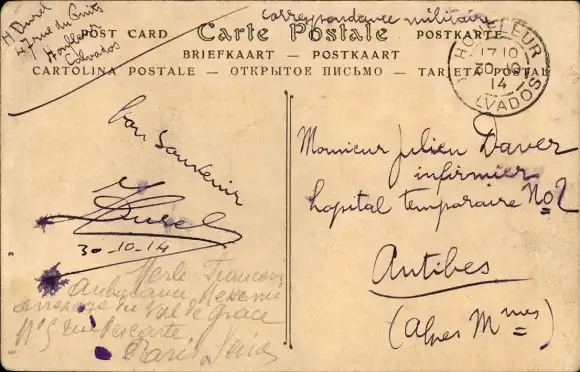 H Durel
47 rue du Puits
Honfleur
Calvados
correspondance militaire
POST CARD Carte Postale POSTKARTE
BRIEFKAART — POSTKAART
CARTOLINA POSTALE — ОТКРЫТОЕ ПИСЬМО — TARJETA POSTAL
HONFLEUR
17 10
30 - 10
14
CALVADOS
bon souvenir
HDurel
30-10-14
Monsieur Julien Daver
infirmier
hopital temporaire No 2
Antibes
(Alpes Mmes)
Merle François
Ambulance
annexe du Val de grace
No 5 rue Descarte
Paris Seine